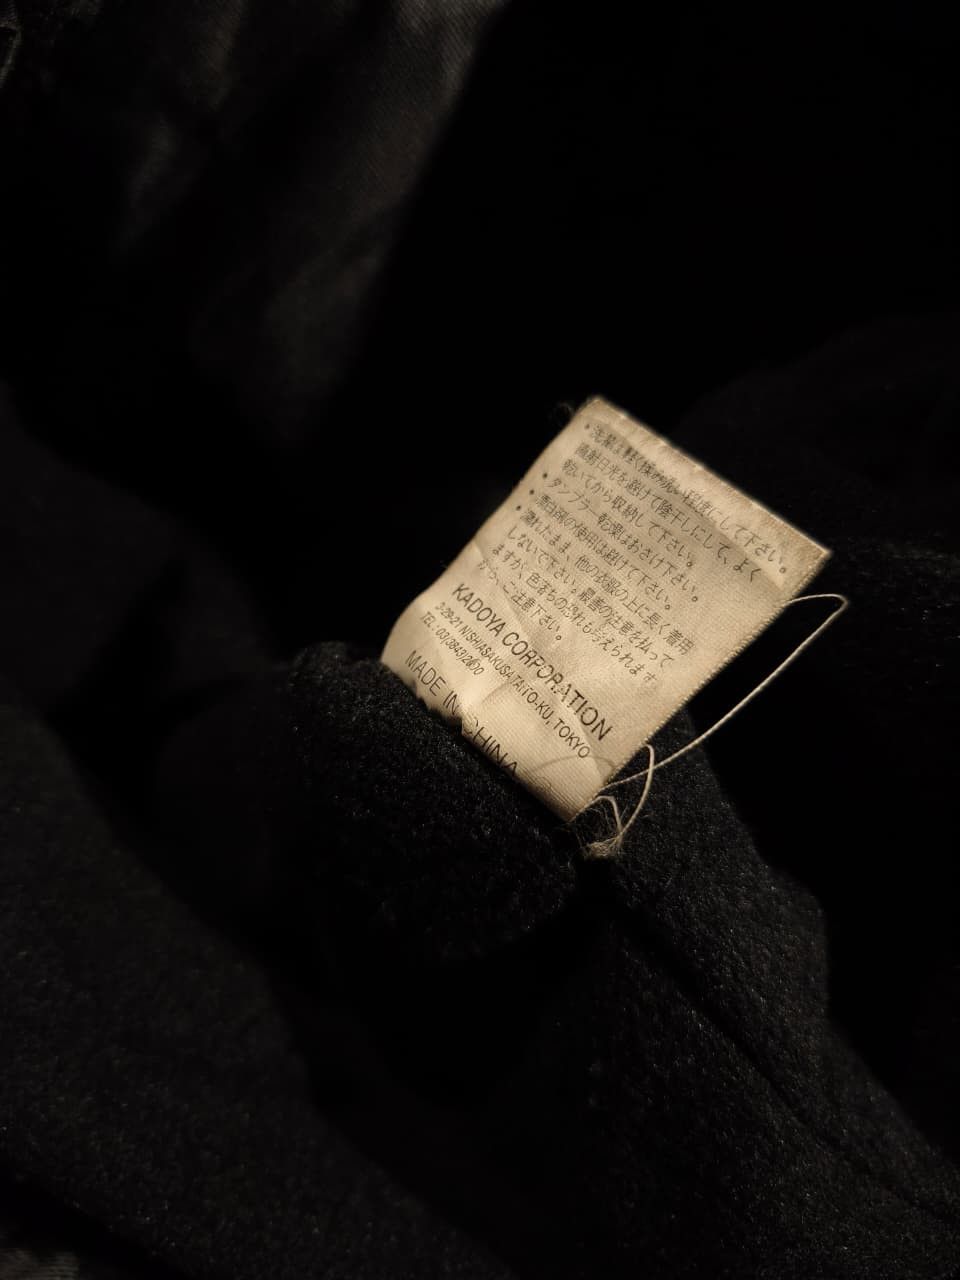 ・洗濯は軽く揉み洗い程度にして下さい。
直射日光を避けて陰干しにして、よく
乾いてから収納して下さい。
・タンブラー乾燥はおさけ下さい。
・漂白剤の使用は避けて下さい。
・濡れたまま、他の衣服の上に長く着用
しないで下さい。最善の注意を払って
ますが、色落ちの恐れも考えられます
から、ご注意下さい。
KADOYA CORPORATION
3-29-21 NISHIASAKUSA TAITO-KU, TOKYO
TEL: 03(3843)2000
MADE IN CHINA